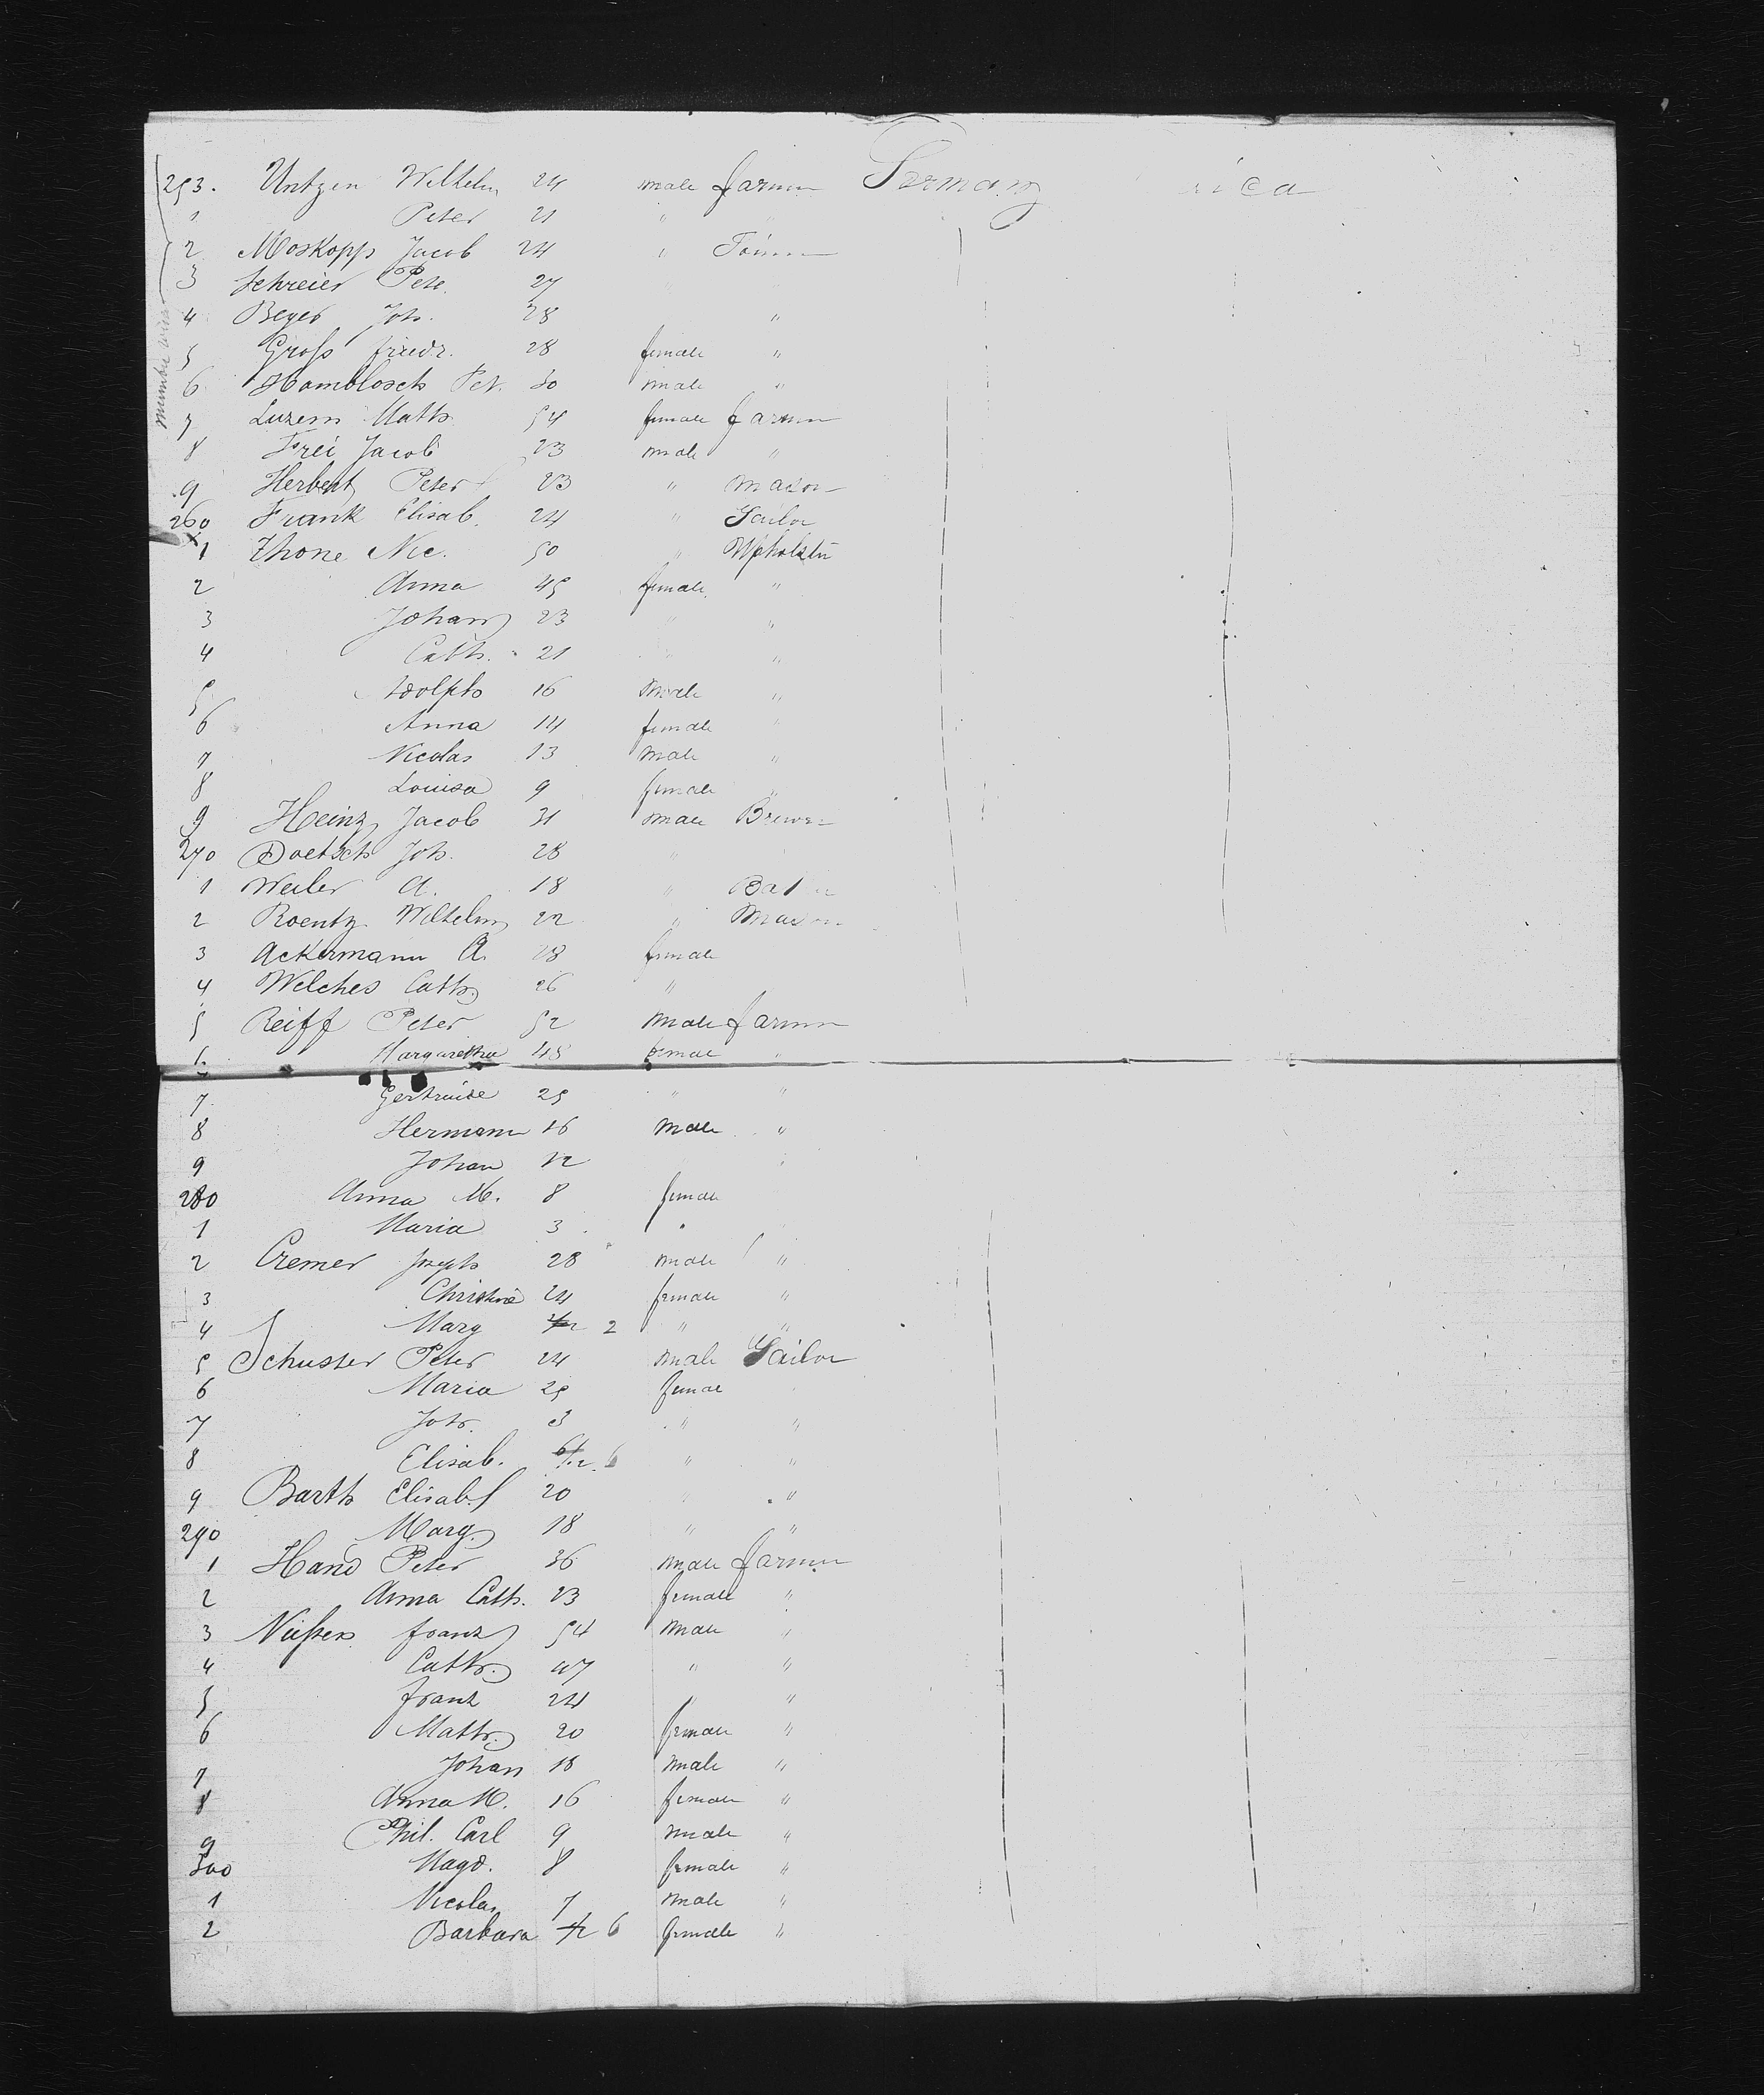 253. Untzen Wilhelm 24 male farmer Germany
1 Peter 21 " "
2 Moskopp Jacob 24 "
3 Schreier Pete. 27
4 Beyer Joh. 28 "
5 Groß friedr. 28 female "
6 Hamblosch Pet. 30 male "
7 Luzem Math 54 female farmer
8 Frei Jacob 23 male "
9 Herbertz Peter 23 " mason
260 Frank Elisab. 24 " Tailor
1 Thone Nic. 50 " Upholster
2 Anna 45 female "
3 Johann 23 " "
4 Cath. 21 " "
5 Adolph 16 Male "
6 Anna 14 female "
7 Nicolas 13 Male "
8 Louisa 9 female "
9 Heinz Jacob 31 male Brewer
270 Doetsch Joh. 28 "
1 Weiler A. 18 "
2 Roentz Wilhelm 22 " Mason
3 Ackermann A. 28 female
4 Welches Cath. 26 "
5 Reiff Peter 52 Male farmer
6 Margaretha 48 femae "
7 Gertruide 25 " "
8 Hermann 16 Male "
9 Johan 12
280 Anna M. 8 female
1 Maria 3 "
2 Cremer Joseph 28 male "
3 Christine 24 female "
4 Marg 2 " "
5 Schuster Peter 24 male Tailor
6 Maria 25 femae
7 Joh. 3 " "
8 Elisab. 6/12 6 " "
9 Barth Elisab. 20 " "
290 Marg. 18 " "
1 Hand Peter 36 male farmer
2 Anna Cath. 23 female "
3 Nießen franz 54 Male "
4 Cath. 47 " "
5 franz 24 " "
6 Math. 20 female "
7 Johan 18 male "
8 Anna M. 16 female "
9 Phil. Carl 9 male "
300 Magd. 8 female "
1 Nicolas 7 male "
2 Barbara 6 female "